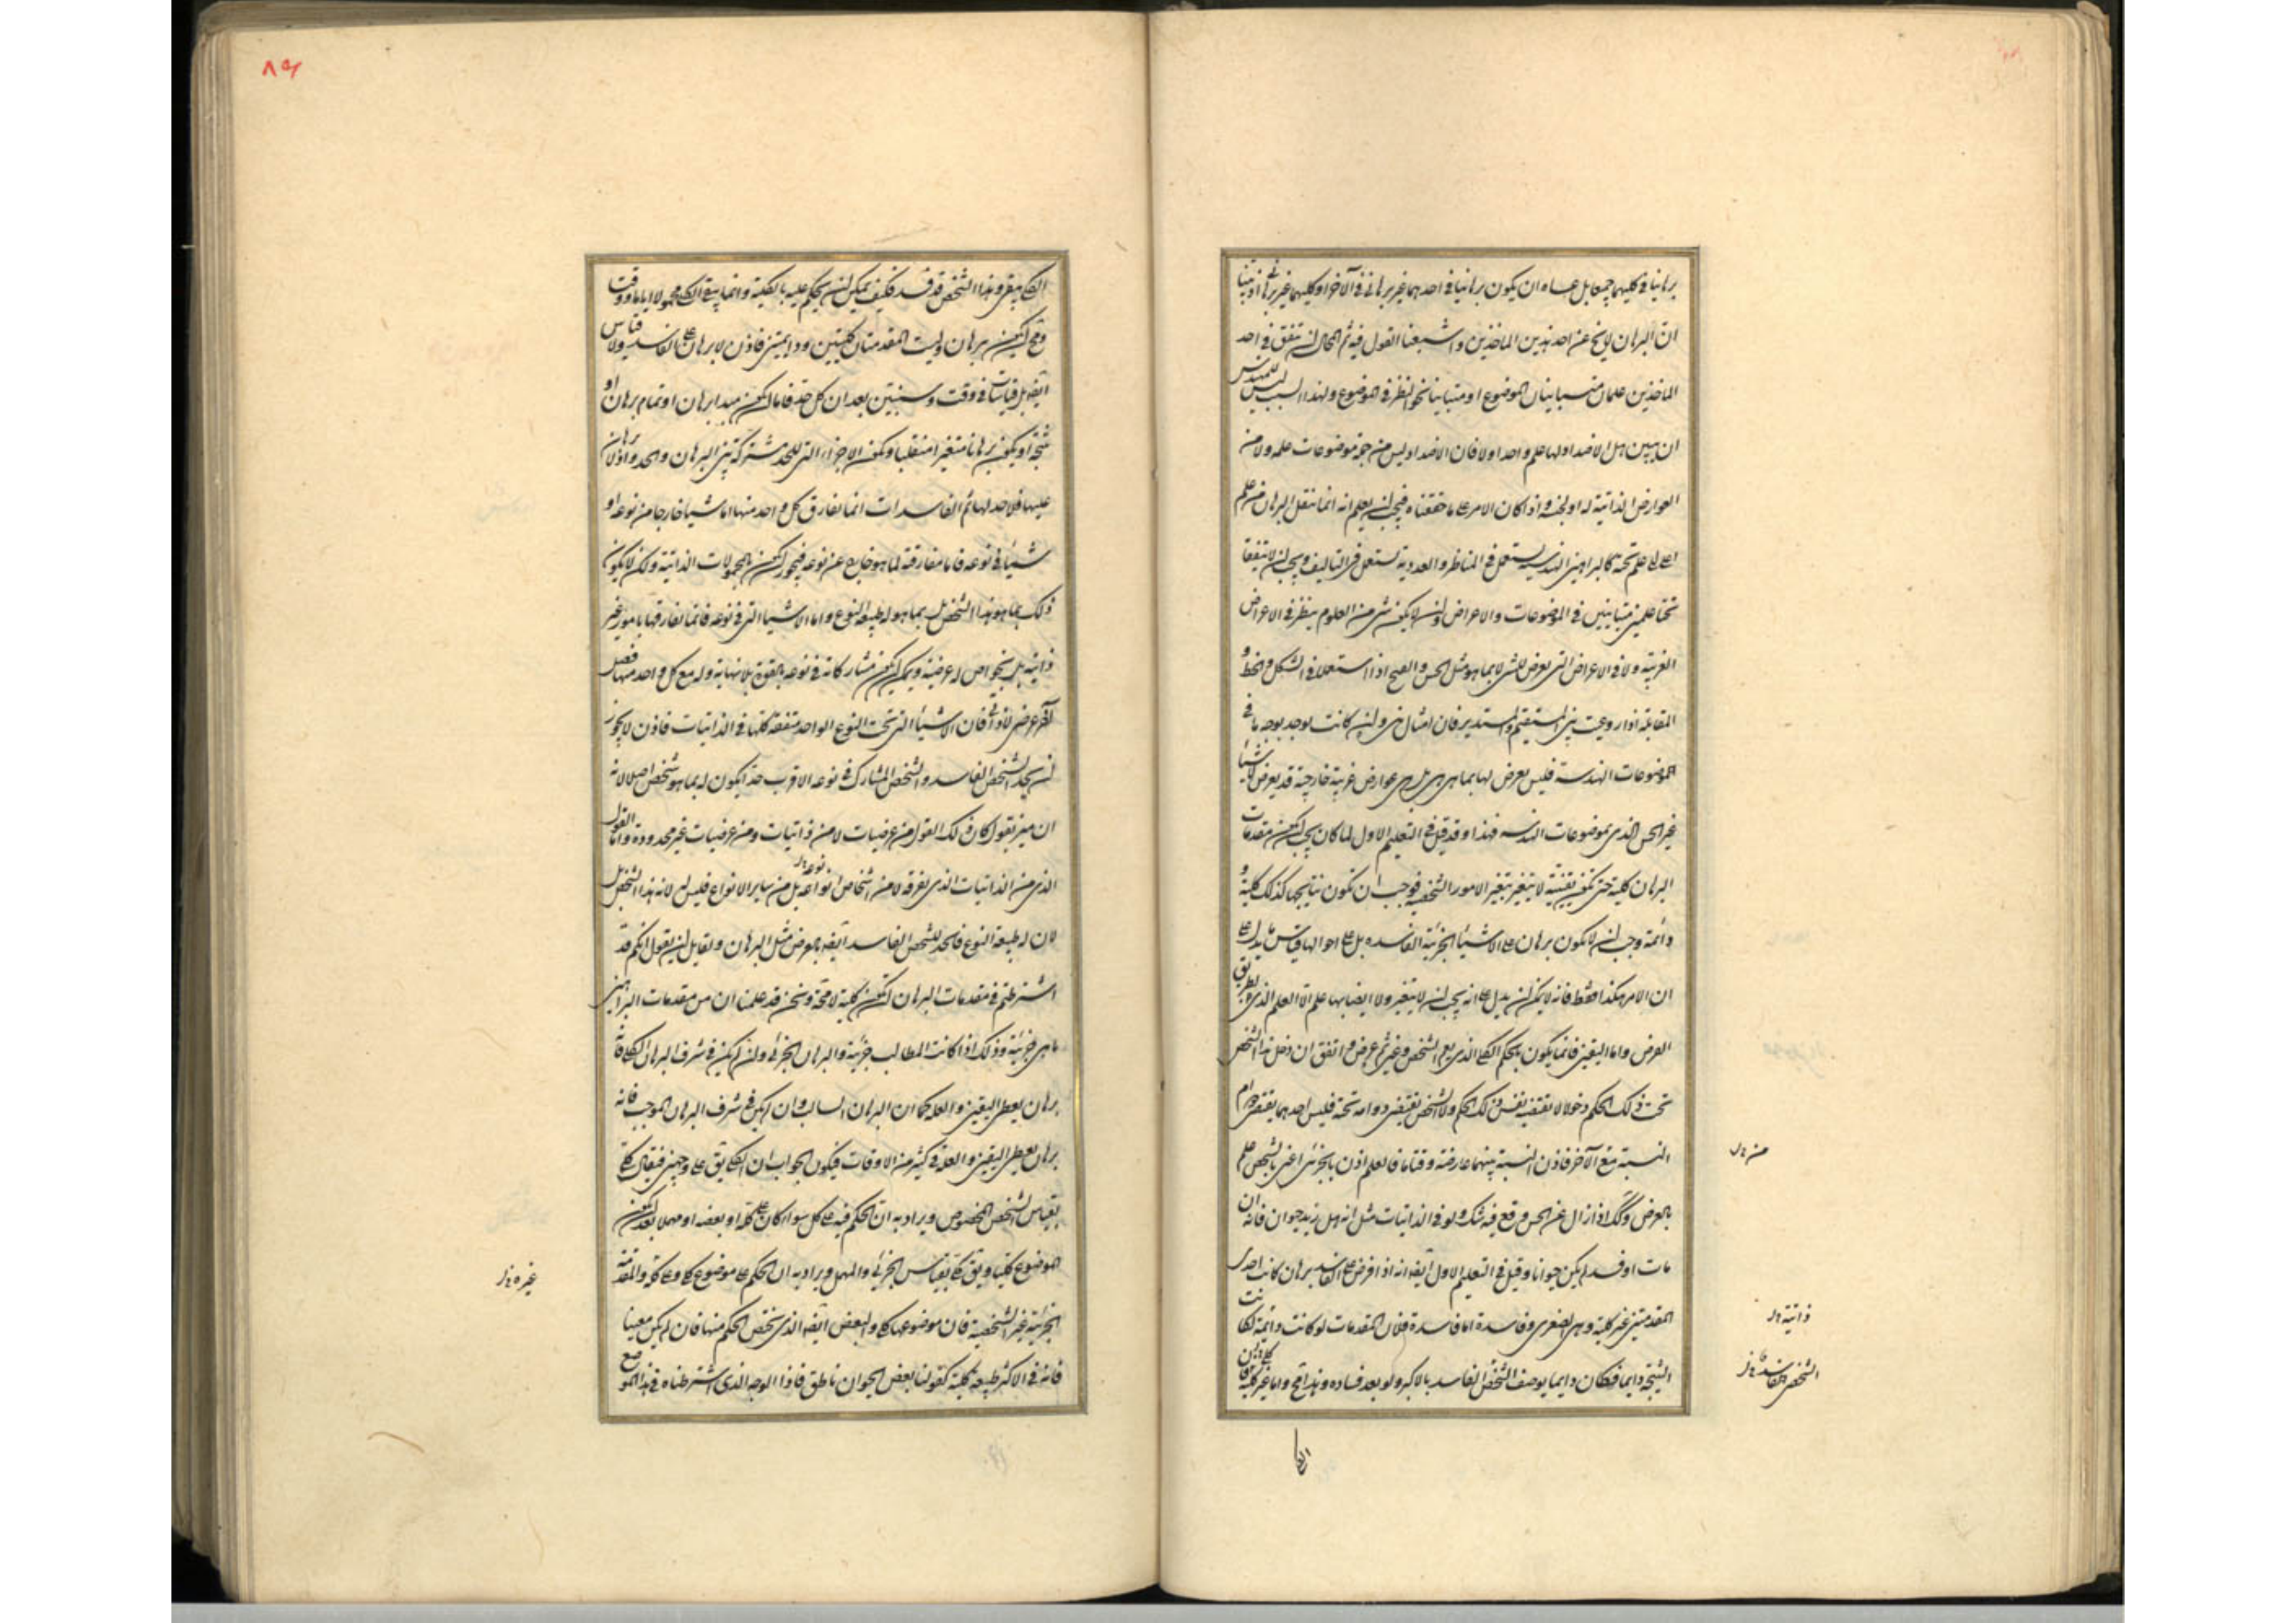 برهانيا في كليهما جميعا بل عساه ان يكون برهانيا في احدهما غير برهاني في الآخر او كليهما غير برهاني اذ بيّنا
ان البرهان لا يخ عن احد هذين الماخذين واشبعنا القول فيه ثم المحال ان يتفق في احد
الماخذين علمان متباينان الموضوع او متباينا نحو النظر في الموضوع ولهذا السبب ليس للمهندس
ان يبين هل الاضداد لها علم واحد اولا فان الاضداد ليس من جهة موضوعات علمه ولا من
العوارض الذاتية له او لجنسه واذا كان الامر على ما حققناه فيجب ان يعلم انه انما ينقل البرهان من علم
الى علم تحته كالبراهين الهندسية يستعمل في المناظر والعددية تستعمل في التاليف ويجب ان لا يتفقا
تحتا علمين متباينين في الموضوعات والاعراض وان لا يكون شي من العلوم ينظر في الاعراض
الغريبة ولا في الاعراض التي تعرض للشي لا بما هو مثل الحسن والقبح اذا استعملا في الشكل والخط و
المقابلة اذا روعيت بين المستقيم والمستدير فان امثال هذه وان كانت يوجد بوجه ما في
موضوعات الهندسة فليس يعرض لها بما هي هي بل هي عوارض غريبة خارجة قد يعرض لاشيا
غير الجنس الذي لموضوعات الهندسه فهذا وقد قيل في التعليم الاول لما كان يجب ان يكون مقدمات
البرهان كلية حتى تكون يقينية لا يتغير بتغير الامور الشخصية فوجب ان تكون نتايجها كذلك كلية و
دائمة وجب ان لا يكون برهان على الاشيا الجزئية الفاسده بل على احوالها قياس ما يدل على
ان الامر هكذا فقط فانه لا يمكن ان يدل على انه يجب ان لا يتغير ولا ايضا بها علم الا العلم الذي بطريق
العرض واما اليقين فانما يكون بالحكم الكلي الذي يعم الشخص وغيره ثم عرض واتفق ان دخل هذا الشخص
تحت ذلك الحكم دخولا لا تقتضيه نفس ذلك الحكم ولا الشخص يقتضي دوامه تحته فليس احدهما يقتضي دوام
النسبة مع الآخر فاذن النسبة بينهما عارضة وقتا ما فالعلم اذن بالجزئي اعني بالشخص علم
بالعرض ولذلك اذا زال عن الحس وقع فيه شك ولو في الذاتيات مثل انه هل زيد حيوان فانه ان
مات او فسد لم يكن حيوانا وقيل في التعليم الاول ايضا انه اذا فرض على الفاسد برهان كانت احدى
المقدمتين غير كلية وهي الصغرى وفاسدة اما فاسدة فلان المقدمات لو كانت دائمة لكانت
النتيجة دايما فكان دايما يوصف الشخص الفاسد بالاكبر ولو بعد فساده وهذا مح واما غير كلية فلان
منه خ ل
ذاتية خ ل
الشخص الفاسد خ ل
الكلي يبقى وهذا الشخص قد فسد فكيف يمكن ان يحكم عليه بالكلية وانما يبقى الكلي محمولا اياما ووقتا
ومح ان يكون برهان وليست المقدمتان كليتين ودايمتين فاذن لا برهان على الفاسد ولا قياس
ايضا بل قياسات في وقت وسنبين بعد ان كل حد فاما ان يكون مبدا برهان او تمام برهان او
نتيجة او يكون برهانا متغيرا منقلبا ويكون الاجزاء التي للحد مشتركة بين البرهان والحد واذ لا برهان
عليها فلا حد لها ثم الفاسدات انما تفارق كل واحد منها اما شيئا خارجا من نوعه او
شيئا في نوعه فاما مفارقة لما هو خارج عن نوعه فيجوز ان يكون بالمحمولات الذاتية ولكن لا يكون
ذلك بما هو هذا الشخص بل بما هو له طبيعة النوع واما الاشيا التي في نوعه فانما تفارقها بامور غير
ذاتية بل بخواص له عرضية ويمكن ان يكون مشاركاته في نوعه بالقوة بلا نهاية وله مع كل واحد منها فصل
آخر عرضي لا ذاتي فان الاشيا التي تحت النوع الواحد متفقة كلها في الذاتيات فاذن لا يجوز
ان يحد الشخص الفاسد والشخص المشارك في نوعه الاقرب حدا يكون له بما هو شخص اصلا لانه
ان ميز بقول كان ذلك القول من عرضيات لا من ذاتيات ومن عرضيات غير محدودة واما القول
الذي من الذاتيات الذي يفرقه لا من اشخاص انواعه بل من ساير الانواع فليس له لانه هذا الشخص بل
نوعه خ ل
لان له طبيعة النوع فالحد للشخص الفاسد ايضا بالعرض مثل البرهان ولقايل ان يقول انكم قد
اشترطتم في مقدمات البرهان ان يكون كلية لا محة ونحن قد علمنا ان من مقدمات البراهين
ما هي جزئية وذلك اذا كانت المطالب جزئية والبرهان الجزئي وان لم يكن في شرف البرهان الكلي فانه
برهان يعطي اليقين والعلة كما ان البرهان السالب وان لم يكن في شرف البرهان الموجب فانه
برهان يعطي اليقين والعلة في كثير من الاوقات فيكون الجواب ان الكلي يق على وجهين فيقال كلي
بقياس الشخص المخصوص ويراد به ان الحكم فيه على كل سواء كان على كله او بعضه او مهملا بعد ان يكون
الموضوع كليا ويق كلي بقياس الجزئي والمهمل ويراد به ان الحكم على موضوع كلي وعلى كله والمقدمة
الجزئية غير الشخصية فان موضوعها كلي والبعض ايضا الذي يختص الحكم منها فان لم يكن معينا
فانه في الاكثر طبيعة كلية كقولنا بعض الحيوان ناطق فاذا الوجه الذي اشترطناه في هذا الموضع
غيره خ ل